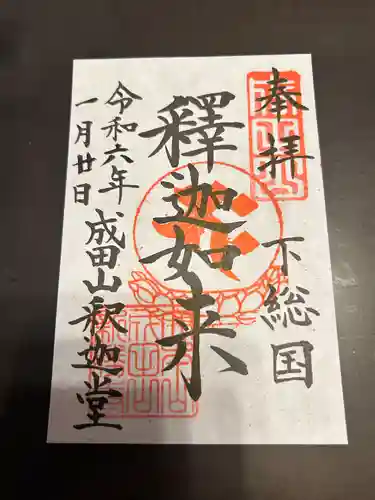 奉拝
下総国
釋迦如来
令和六年
一月廿日
成田山釈迦堂